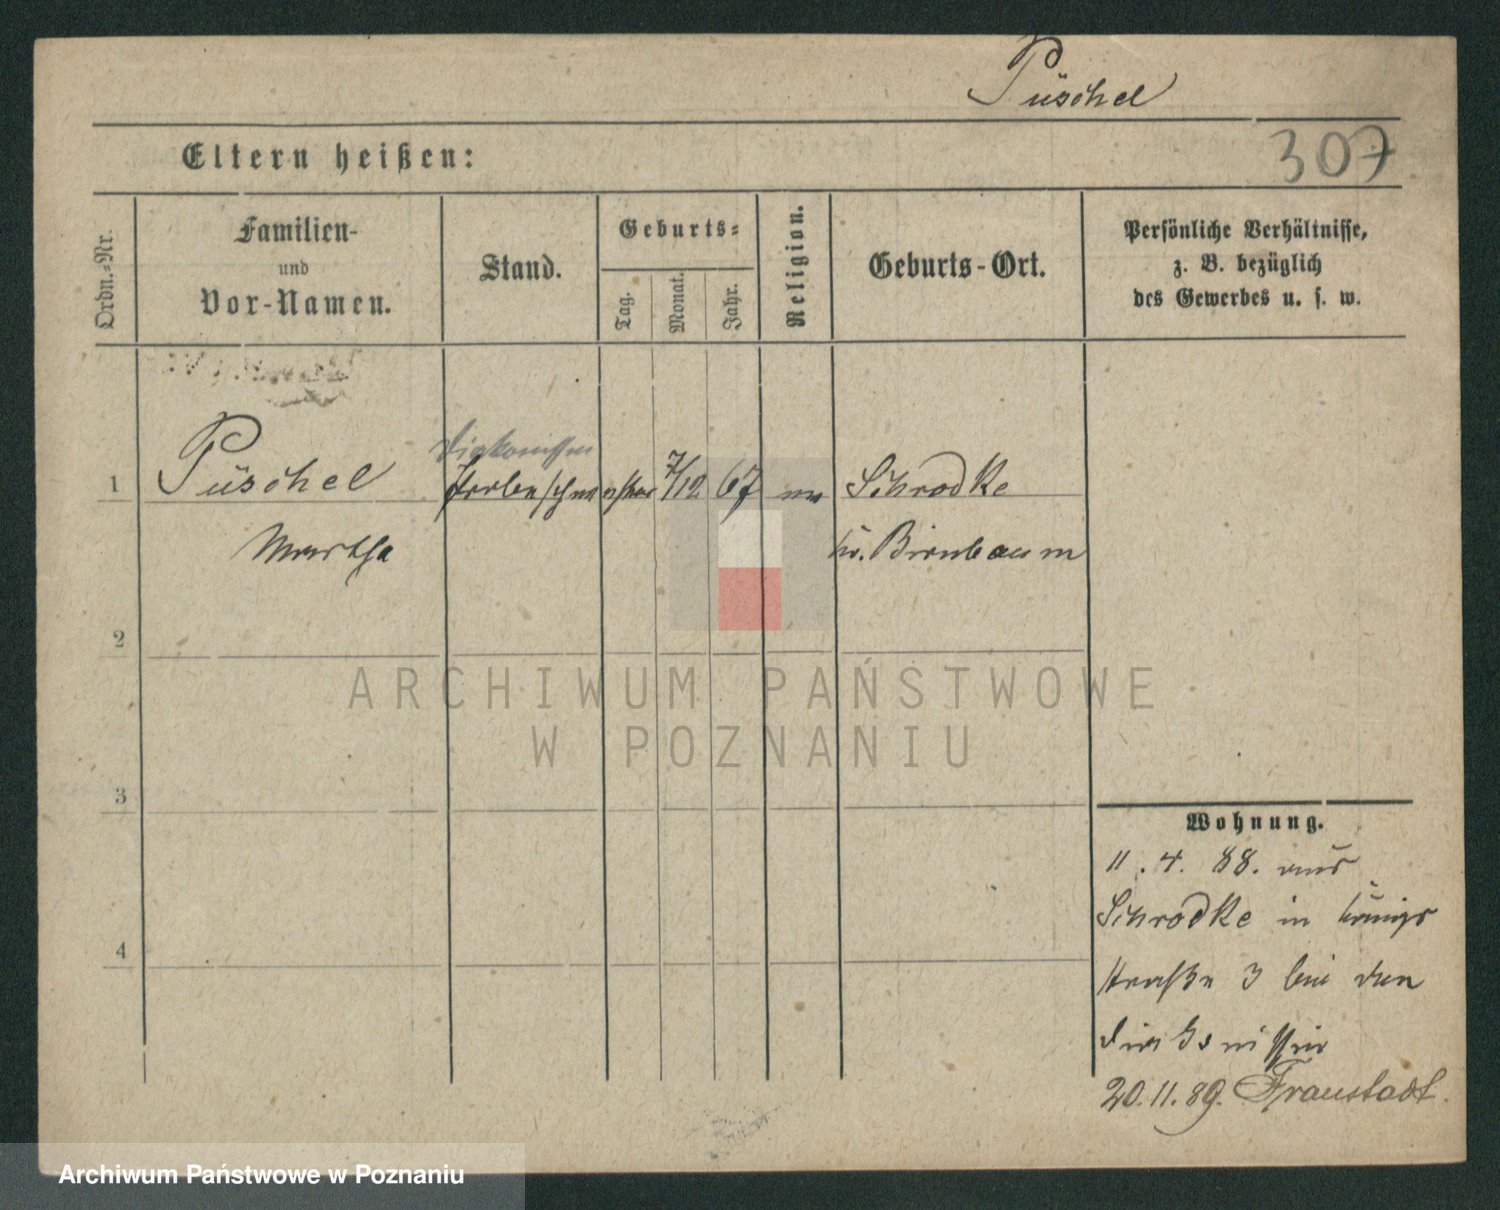 Püschel
307
Eltern heißen:
Ordn.=Nr.
Familien-
und
Vor-Namen.
Stand.
Geburts=
Tag.
Monat.
Jahr.
Religion.
Geburts-Ort.
Persönliche Verhältnisse,
z. B. bezüglich
des Gewerbes u. s. w.
Diakonissin
1 Püschel 7/12 67 ev Schrodke
Martha Kr. Birnbaum
2
3
4
Wohnung.
11. 4. 88. aus
Schrodke in Königs
straße 3 bei den
Diakonissin
20.11.89. Fraustadt.
ARCHIWUM PAŃSTWOWE
W POZNANIU
Archiwum Państwowe w Poznaniu